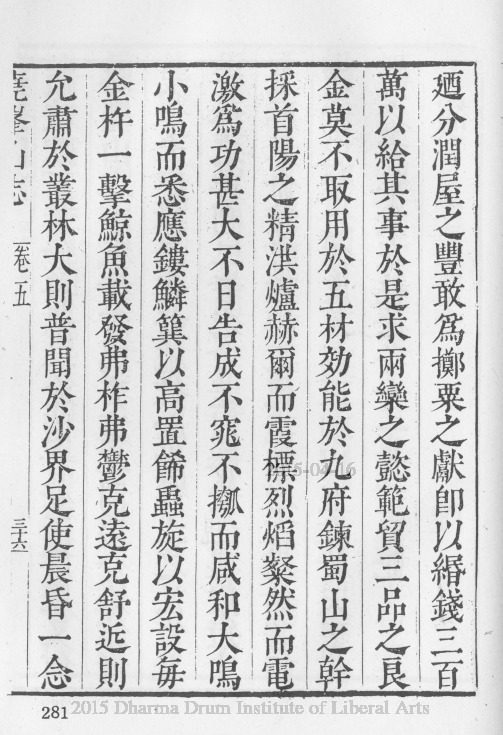 廼分潤屋之豐敢爲擲粟之獻卽以緡錢三百
萬以給其事於是求兩欒之懿範貿三品之良
金莫不取用於五材効能於九府鍊蜀山之幹
採首陽之精洪爐赫爾而霞標烈焰粲然而電
激爲功甚大不日告成不窕不摦而咸和大鳴
小鳴而悉應鏤鱗簨以高置餙蟲旋以宏設每
金杵一擊鯨魚載發弗柞弗鬱克遠克舒近則
允肅於叢林大則普聞於沙界足使晨昏一念
堯峯山志 卷五 三十六
281
2015 Dharma Drum Institute of Liberal Arts